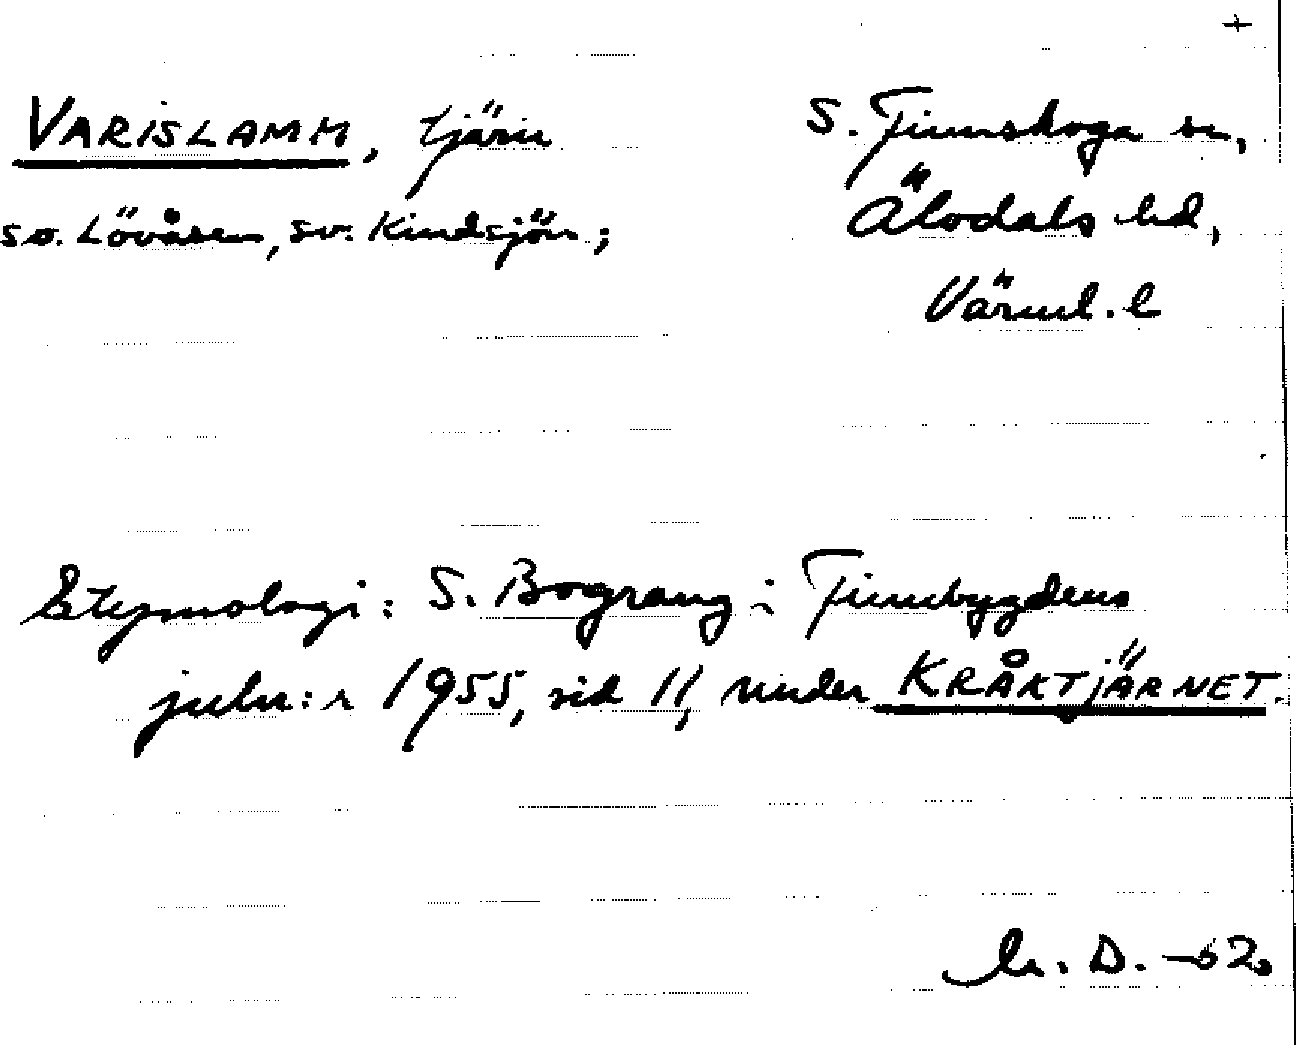 +
VARISLAMM, tjärn
S. Finnskoga sn,
so. Lövåsen, sv. Kindsjön;
Älvdals hd,
Värml. l
Etymologi: S. Bograng i Finnbygdens
julnr: 1955, sid 11, under KRÅKTJÄRNET.
D. -62